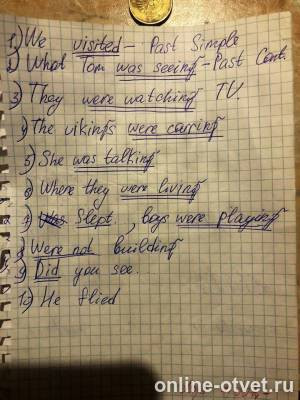 1) We visited - Past Simple
2) What Tom was seeing - Past Cont.
3) They were watching TV.
4) The vikings were carring
5) She was talking
6) Where they were living
7) Slept, boys were playing
8) Were not building
9) Did you see.
10) He flied
online-otvet.ru